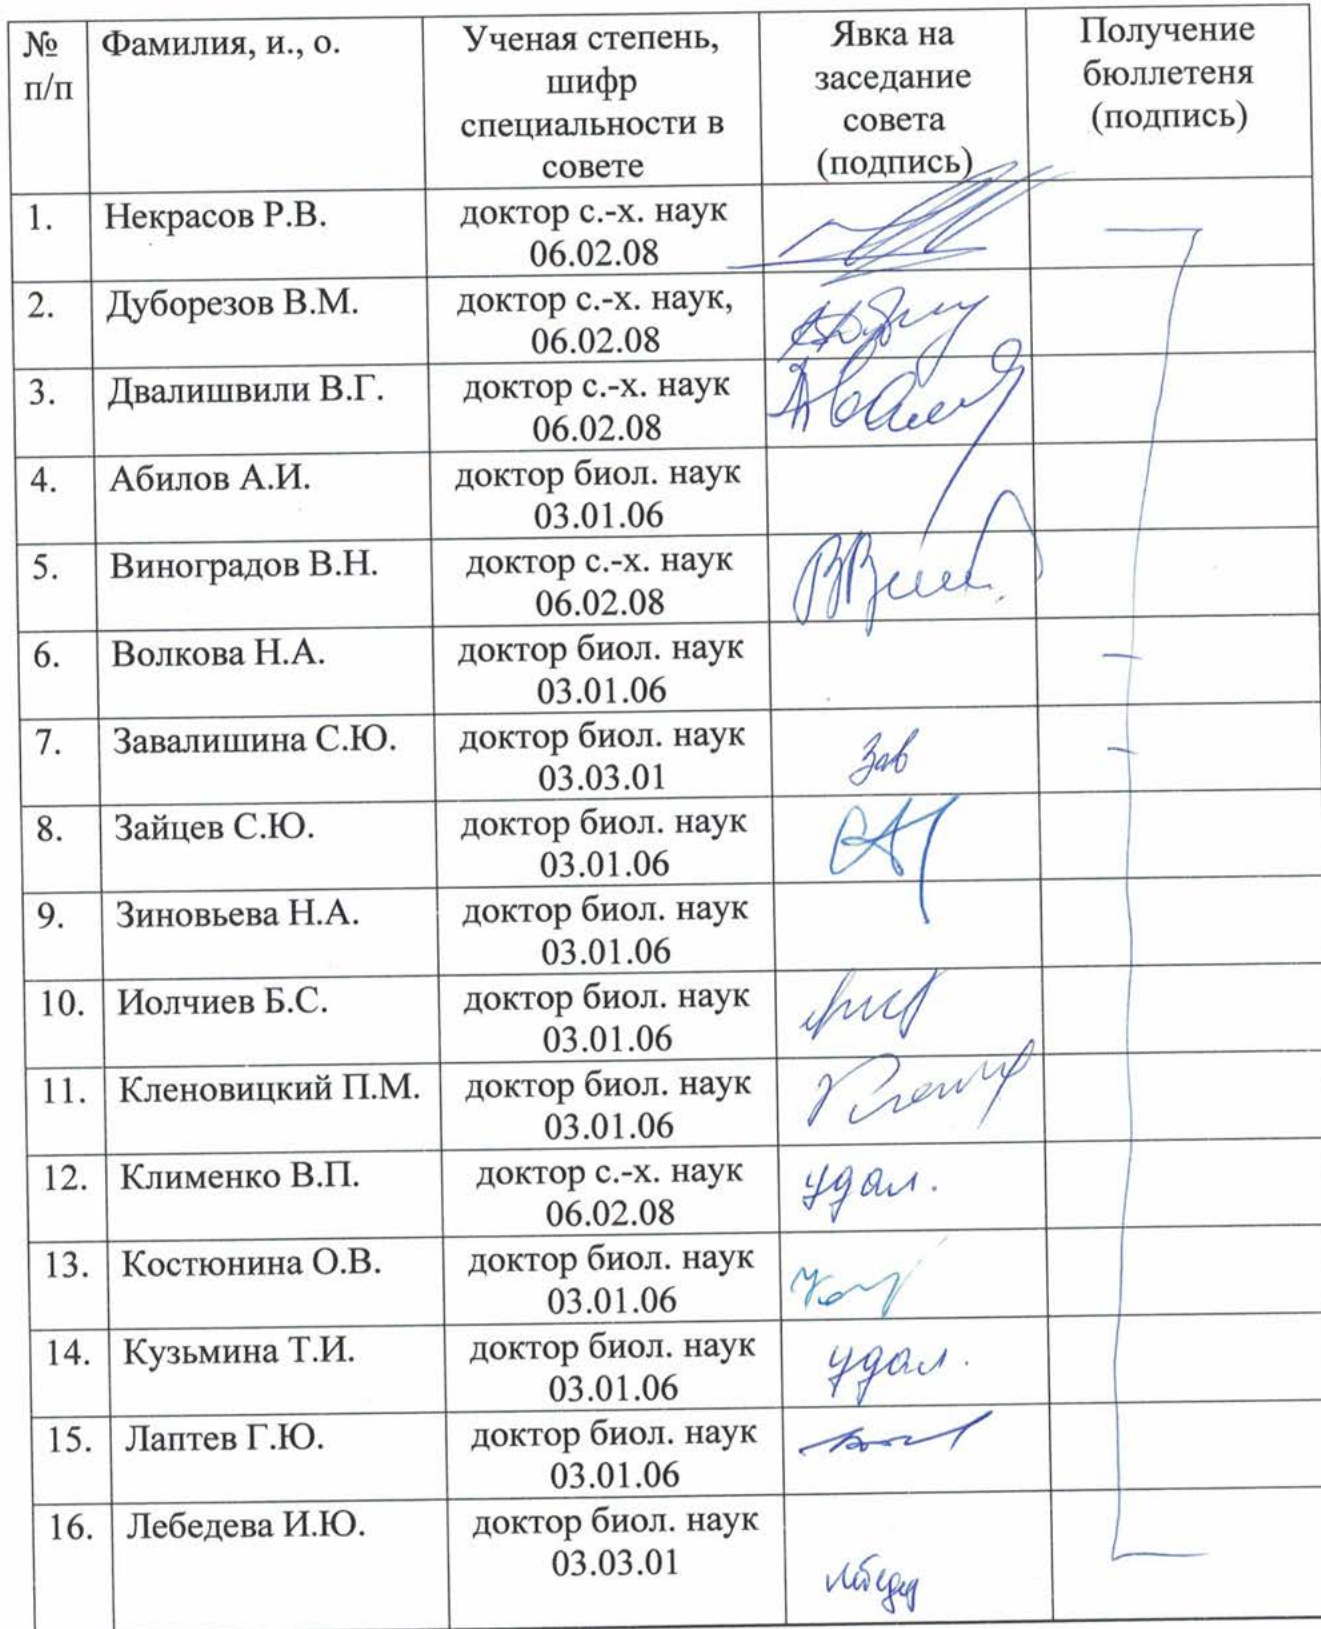 № п/п
Фамилия, и., о.
Ученая степень,
шифр
специальности в
совете
Явка на
заседание
совета
(подпись)
Получение
бюллетеня
(подпись)
1. Некрасов Р.В. доктор с.-х. наук
06.02.08
2. Дуборезов В.М. доктор с.-х. наук,
06.02.08
3. Двалишвили В.Г. доктор с.-х. наук
06.02.08
4. Абилов А.И. доктор биол. наук
03.01.06
5. Виноградов В.Н. доктор с.-х. наук
06.02.08
6. Волкова Н.А. доктор биол. наук
03.01.06
7. Завалишина С.Ю. доктор биол. наук
03.03.01 Зав
8. Зайцев С.Ю. доктор биол. наук
03.01.06
9. Зиновьева Н.А. доктор биол. наук
03.01.06
10. Иолчиев Б.С. доктор биол. наук
03.01.06
11. Кленовицкий П.М. доктор биол. наук
03.01.06
12. Клименко В.П. доктор с.-х. наук удал.
06.02.08
13. Костюнина О.В. доктор биол. наук
03.01.06
14. Кузьмина Т.И. доктор биол. наук удал.
03.01.06
15. Лаптев Г.Ю. доктор биол. наук
03.01.06
16. Лебедева И.Ю. доктор биол. наук
03.03.01